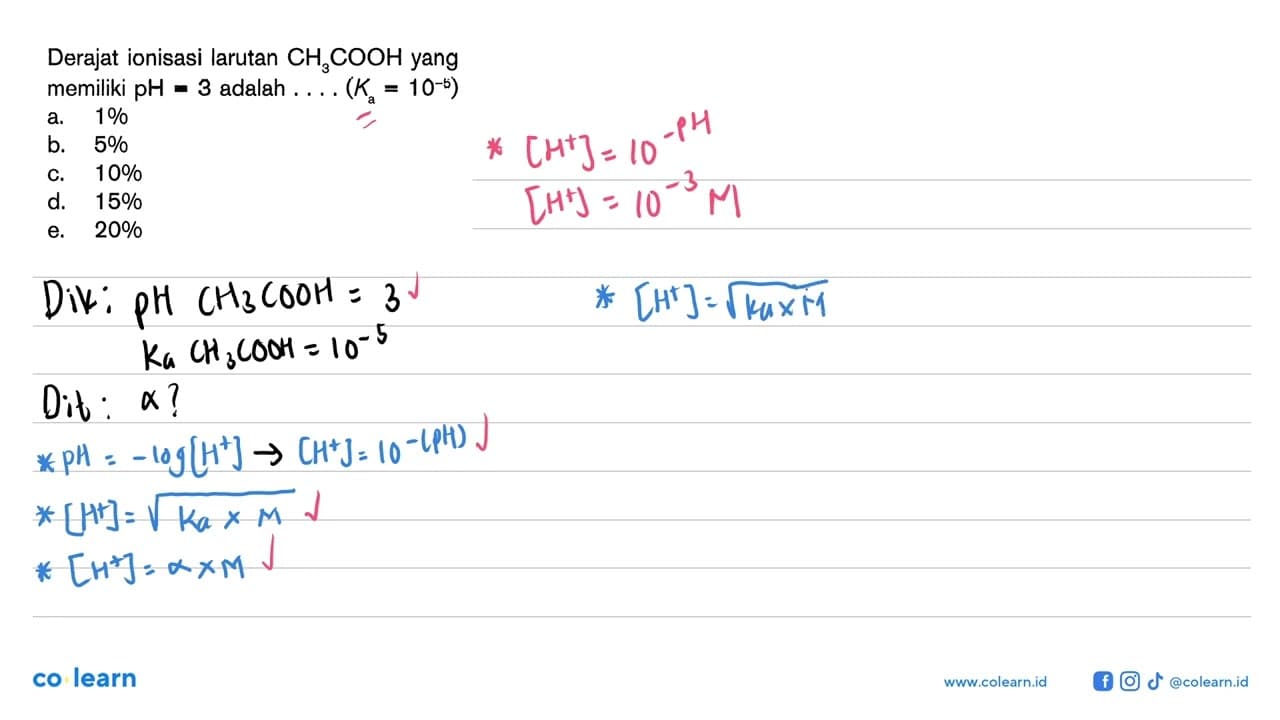 Derajat ionisasi larutan CH₃COOH yang
memiliki pH = 3 adalah . . . . (Kₐ = 10⁻⁵)
a. 1%
b. 5%
c. 10%
d. 15%
e. 20%
* [H⁺] = 10^-PH
[H⁺] = 10⁻³ M
Dik: pH CH₃COOH = 3 ✓
Ka CH₃COOH = 10⁻⁵
Dit: α?
* pH = -log[H⁺] → [H⁺] = 10^-(pH) ✓
* [H⁺] = √Ka × M ✓
* [H⁺] = α × M ✓
* [H⁺] = √Ka × M
co learn
www.colearn.id
@colearn.id